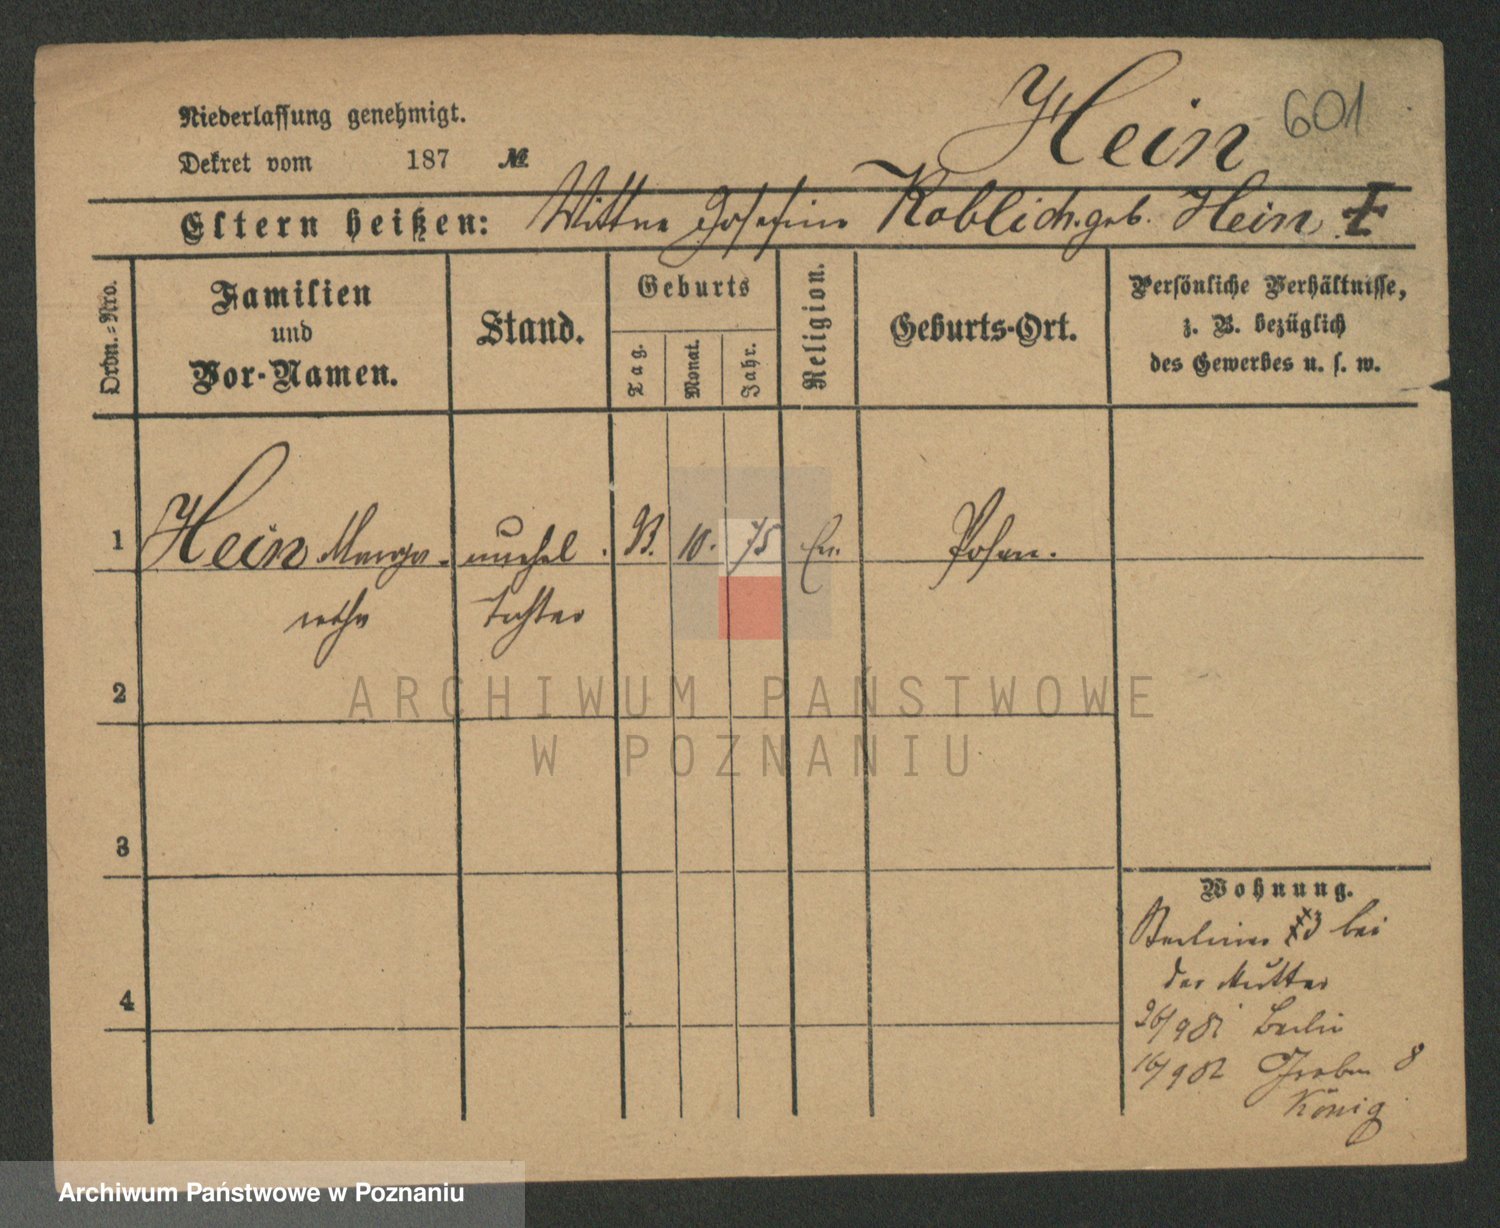 Hein 601
Niederlassung genehmigt.
Dekret vom 187 №
Eltern heißen: Wittwe Josefine Koblich. geb. Hein
Ordn.-Nro.
Familien
und
Vor-Namen.
Stand.
Geburts
Tag.
Monat.
Jahr.
Religion.
Geburts-Ort.
Persönliche Verhältnisse,
z. B. bezüglich
des Gewerbes u. s. w.
1 Hein Marga- unehel. 10. 75 Ev. Posen.
rethe Tochter
2
3
4
Wohnung.
Berliner 3 bei
der Mutter
26/9 81 Berlin
16/9 82 Graben 8
König
ARCHIWUM PAŃSTWOWE
W POZNANIU
Archiwum Państwowe w Poznaniu